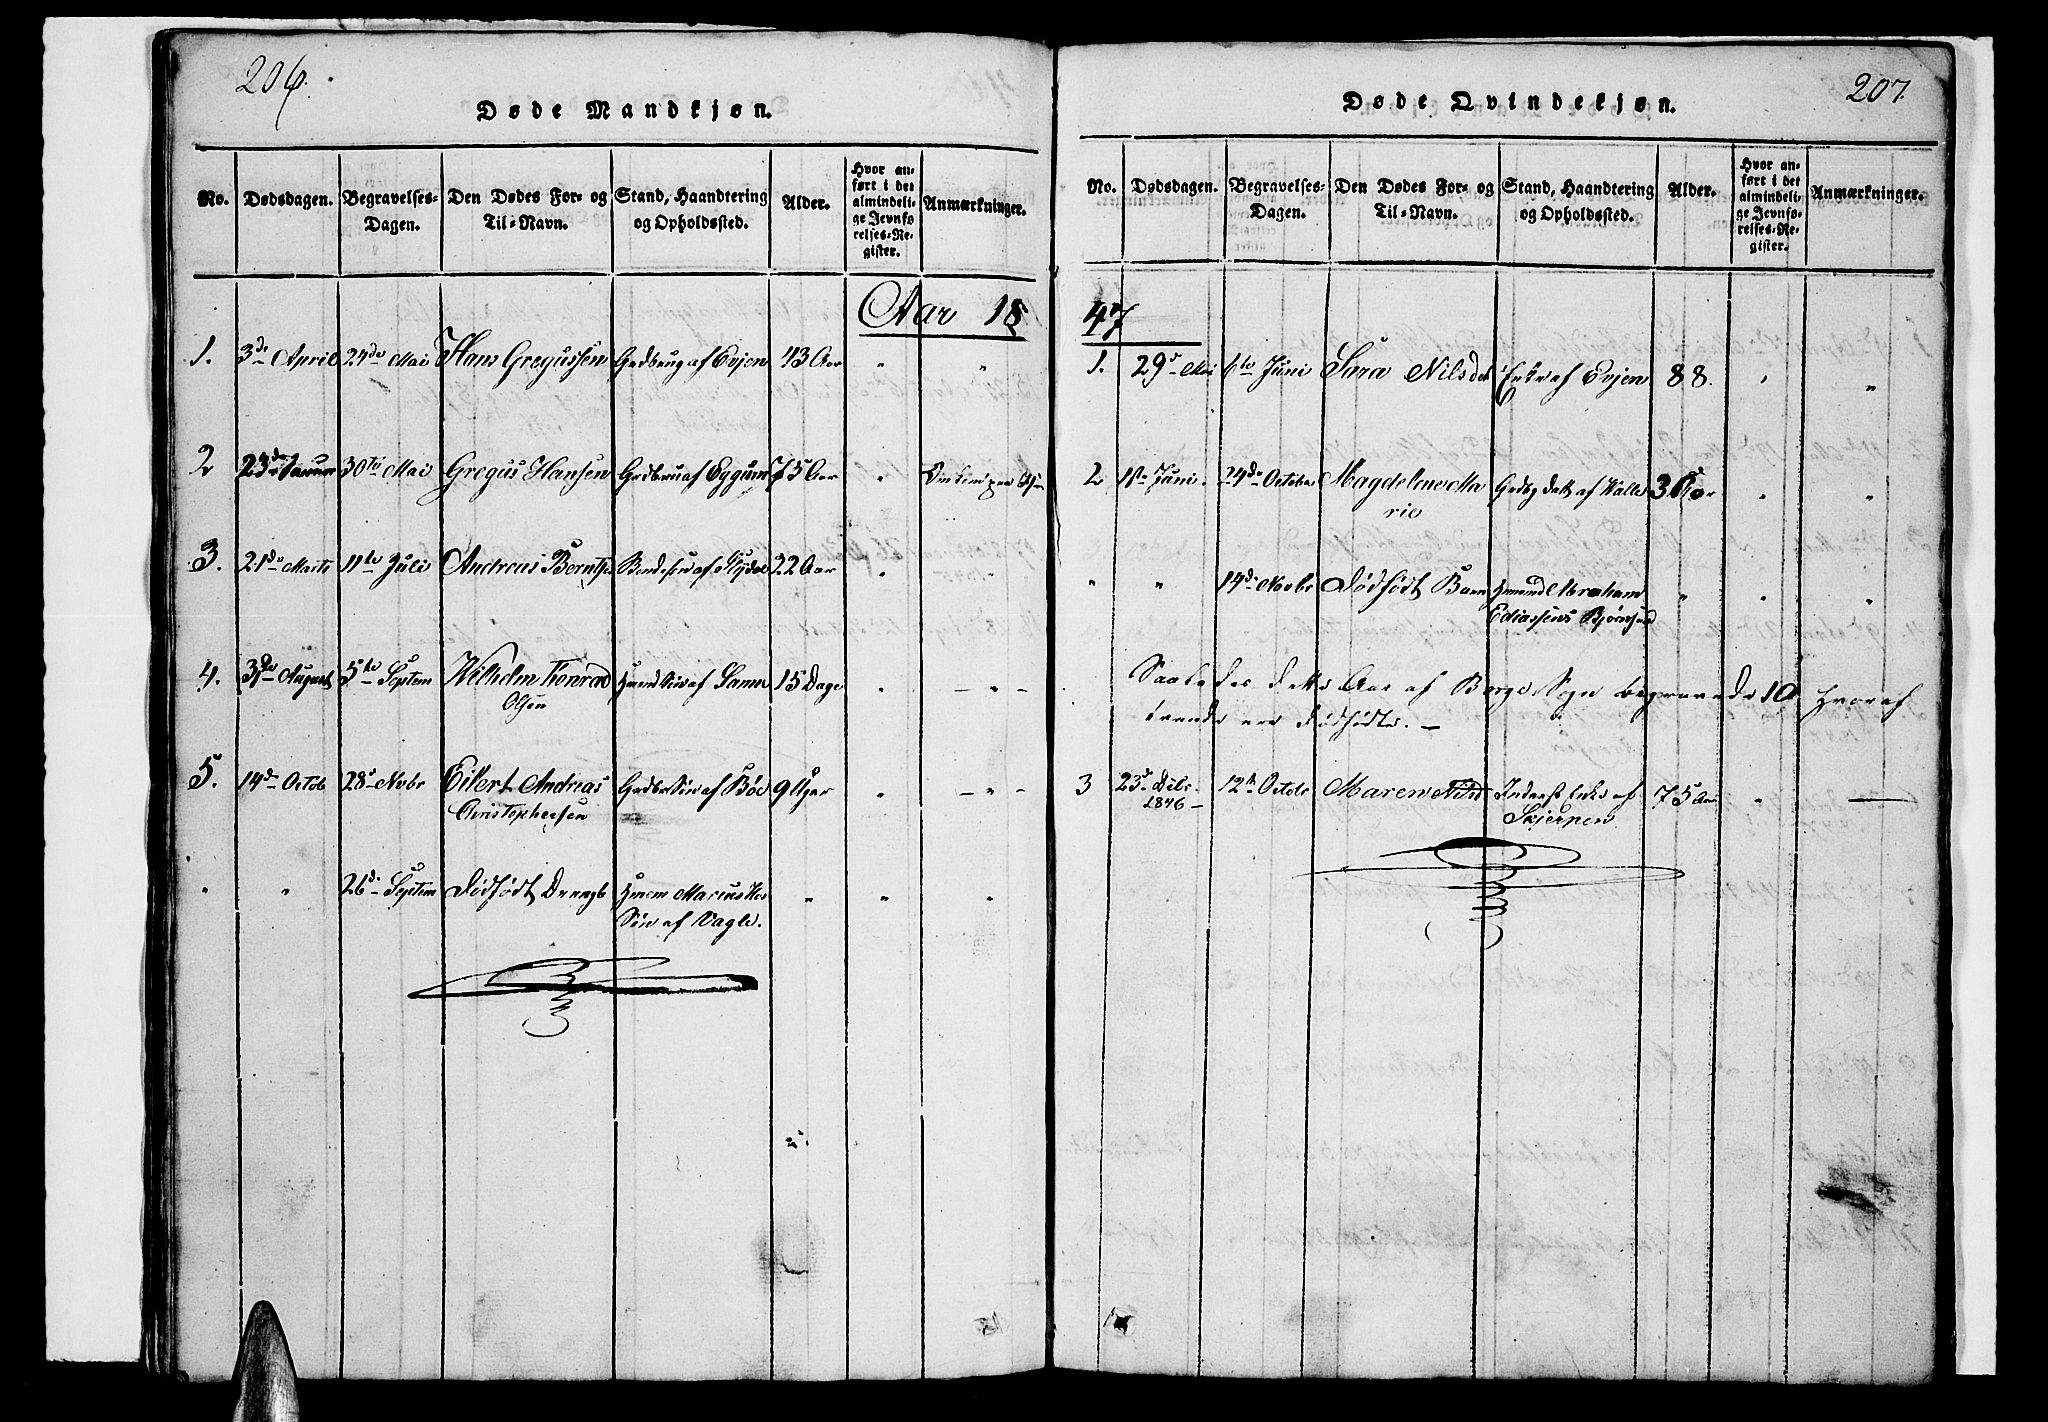 206.
Døde Mandkjøn.
No.
Dødsdagen.
Begravelses-
Dagen.
Den Dødes For- og
Til-Navn.
Stand, Haandtering
og Opholdssted.
Alder.
Hvor an-
ført i det
almindeli-
ge Jevnfø-
relses-Re-
gister.
Anmærkninger.
Aar 18
1. 3de April 24de Mai Hans Gregussen Grdbrug af Evjen 43 Aar " "
2 23de Januar 30te Mai Gregus Hansen Grdbru af Eggum 75 Aar "
3. 21de Marts 11te Juli Andreas Berntsen Bondesøn af 22 Aar " "
4. 31te August 5te Septem Wilhelm Konrad Huusm Søn af Sann 15 Dage " — " —
Olsen
5. 14de Octob 28de Novbr Eilert Andreas Grdbr Søn af Bøe 9 Uger " — " —
Christophersen
" " 26de Septem Dødfødt Drengb Huusm Marius
Søn af Vagle. " " "
207.
Døde Qvindekjøn.
No.
Dødsdagen.
Begravelses-
Dagen.
Den Dødes For- og
Til-Navn.
Stand, Haandtering
og Opholdssted.
Alder.
Hvor an-
ført i det
almindeli-
ge Jevnfø-
relses-Re-
gister.
Anmærkninger.
47
1. 29de Mai 6te Juni Sara Nilsdet Enke af Evjen 88. " "
2 1ste Juni. 24de Octobe Magdelene Ma Grdbg datt af Valle " "
rie
" " 14de Novbr Dødfødt Barn Huusmd Abraham " " "
Ediassens Bjørnsund
Saaledes dette Aar af Borge Sogn begravede 10 hvoraf
tvende ere dødfødte. —
3 23de Debr. 12te Octobr Maren Nilsd Inderst Enke af 75 Aar " —
1846 — Skjerpen